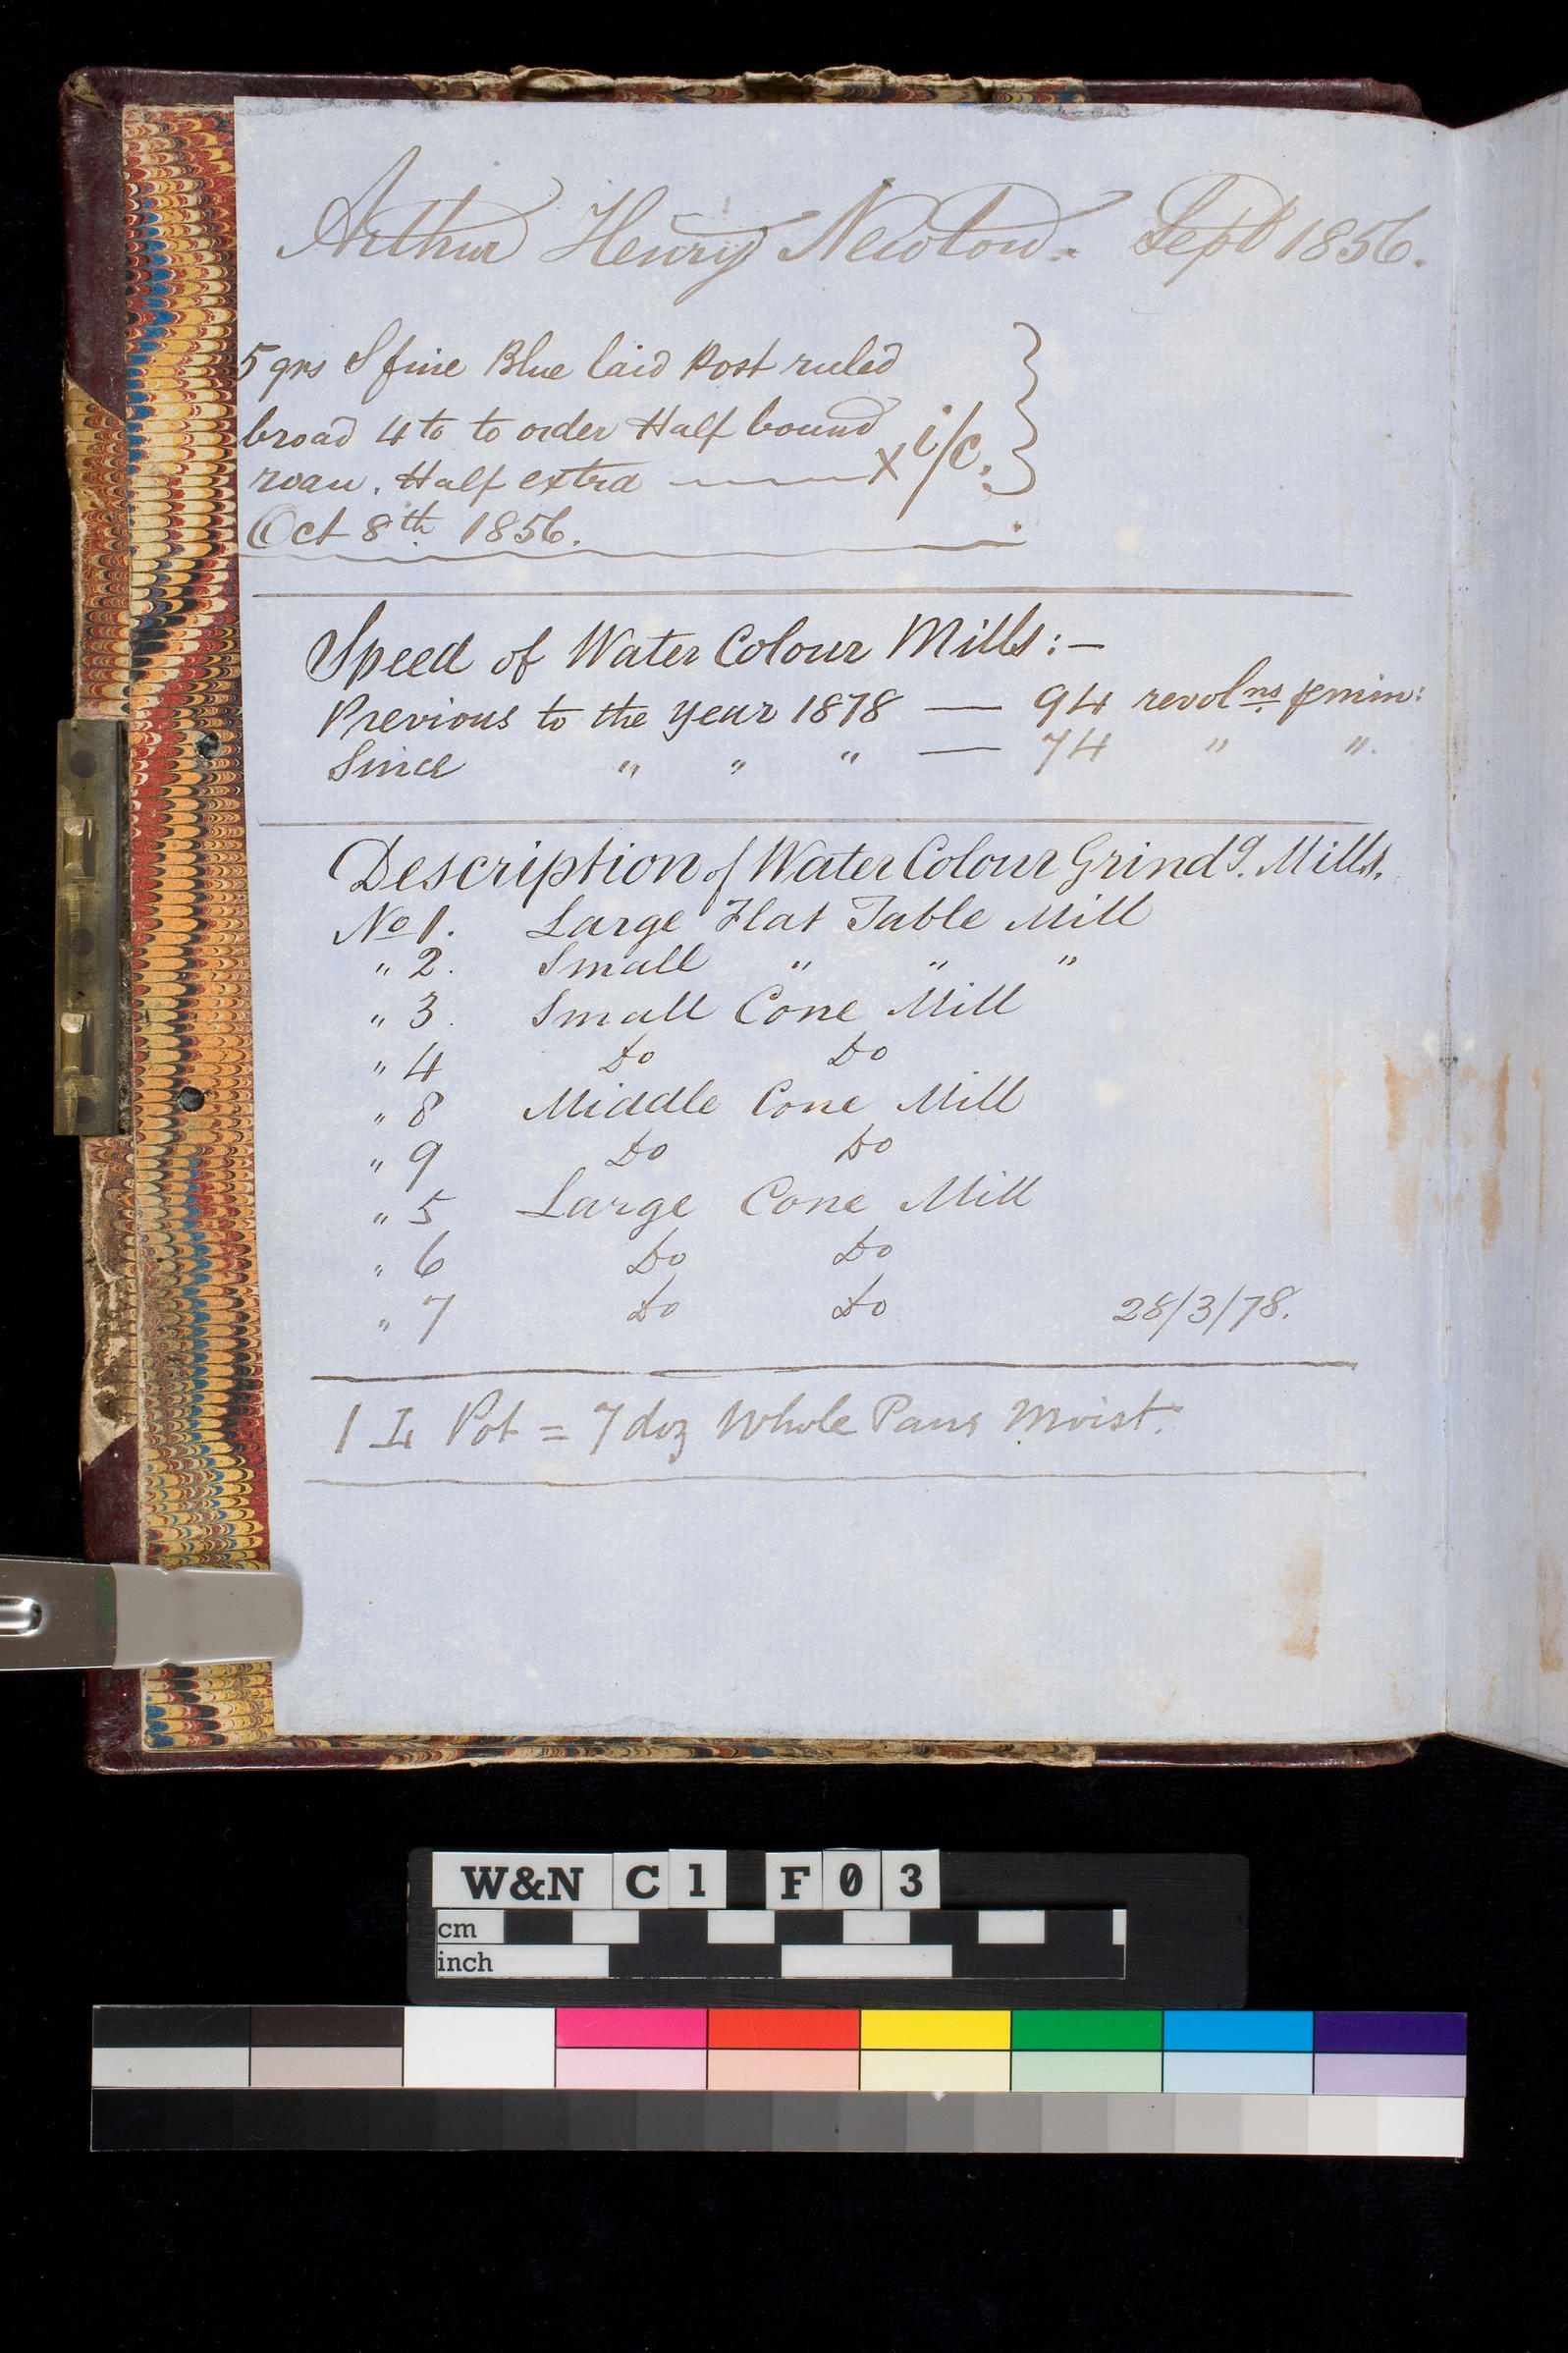 Arthur Henry Newton. Sept 1856.
5 qrs S fine Blue laid Post ruled
broad 4to to order Half bound
roan. Half extra ——— x i/c.
Oct 8th 1856.
Speed of Water Colour Mills:—
Previous to the year 1878 — 94 revolns. p min:
Since " " " — 74 " ".
Description of Water Colour Grindg. Mills.
No 1. Large Flat Table Mill
" 2. Small " " "
" 3. Small Cone Mill
" 4 Do Do
" 8 Middle Cone Mill
" 9 Do Do
" 5 Large Cone Mill
" 6 Do Do
" 7 Do Do 28/3/78.
1 Pot = 7 doz Whole Pans Moist.
W&N C1 F03
cm
inch